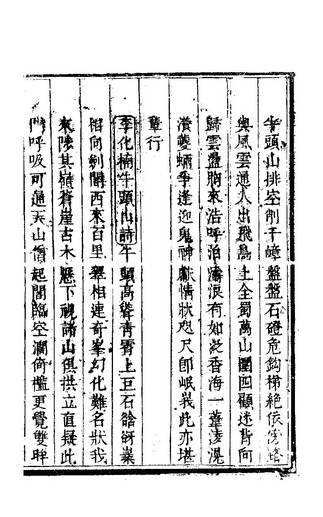 牛頭山排空削千嶂盤盤石磴危鈎梯絕依寥
與風雲通人出飛鳥上全蜀萬山圍四顧迷背向
歸雲盪胸來浩呼泊濤浪有如花香海一葦淩滉
瀁夔蛧爭逢迎鬼神獻情狀咫尺卽岷峩此亦堪
輩行
李化楠牛頭山詩牛頭高聳青霄上巨石谽谺叢
相向劍關西來百里翠相連奇峯幻化難名狀我
來陟其嶺蒼崖古木懸下視諸山俱拱立直疑此
門呼吸可通天山僧起閣臨空濶倚檻更覺雙眸